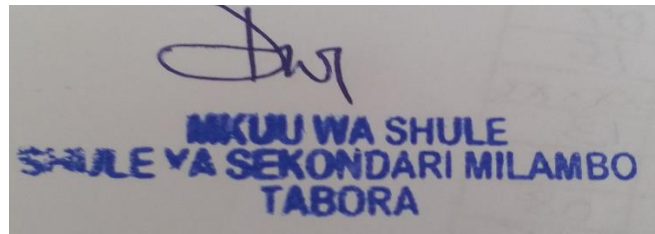 MKUU WA SHULE
SHULE YA SEKONDARI MILAMBO
TABORA